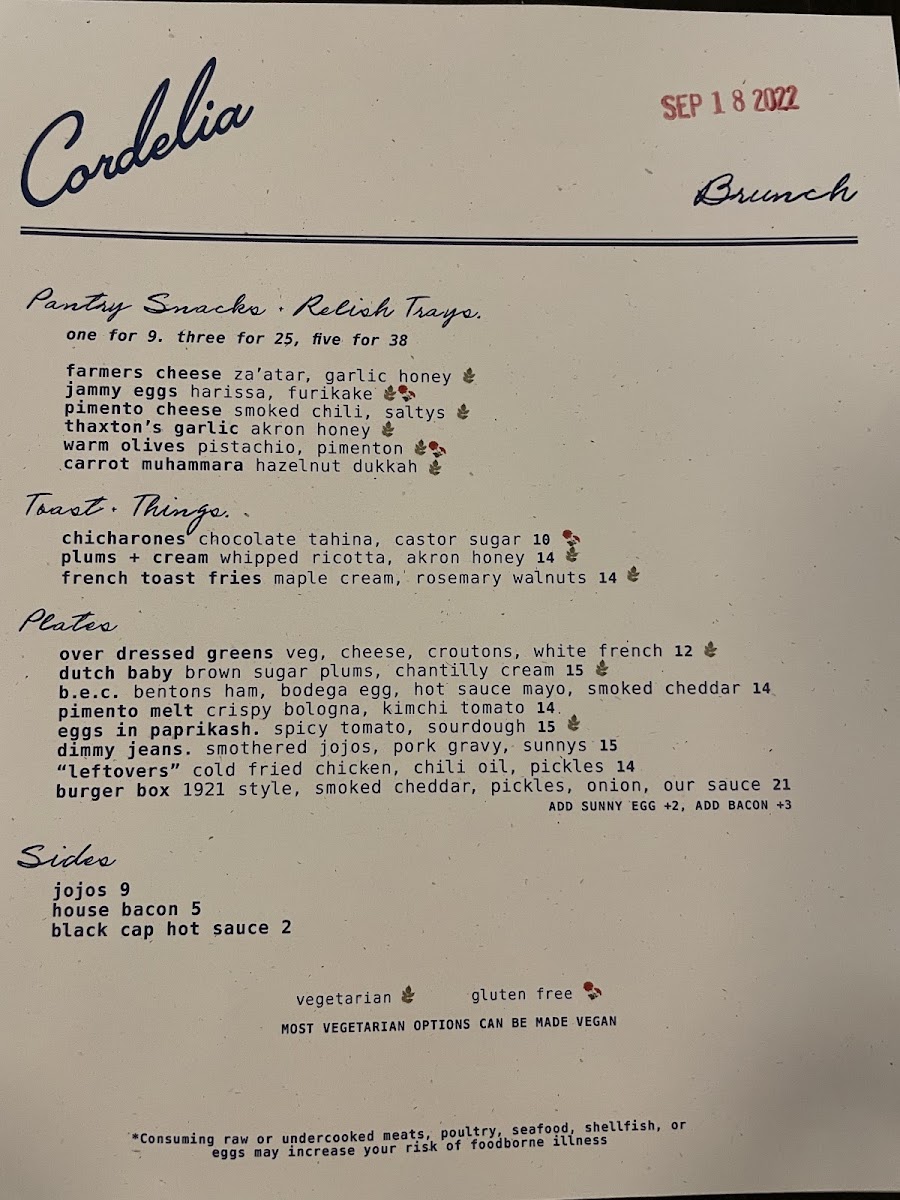 Cordelia
SEP 18 2022
Brunch
Pantry Snacks · Relish Trays.
one for 9. three for 25, five for 38
farmers cheese za’atar, garlic honey
jammy eggs harissa, furikake
pimento cheese smoked chili, saltys
thaxton’s garlic akron honey
warm olives pistachio, pimenton
carrot muhammara hazelnut dukkah
Toast · Things.
chicharones chocolate tahina, castor sugar 10
plums + cream whipped ricotta, akron honey 14
french toast fries maple cream, rosemary walnuts 14
Plates
over dressed greens veg, cheese, croutons, white french 12
dutch baby brown sugar plums, chantilly cream 15
b.e.c. bentons ham, bodega egg, hot sauce mayo, smoked cheddar 14
pimento melt crispy bologna, kimchi tomato 14
eggs in paprikash. spicy tomato, sourdough 15
dimmy jeans. smothered jojos, pork gravy, sunnys 15
“leftovers” cold fried chicken, chili oil, pickles 14
burger box 1921 style, smoked cheddar, pickles, onion, our sauce 21
ADD SUNNY EGG +2, ADD BACON +3
Sides
jojos 9
house bacon 5
black cap hot sauce 2
vegetarian gluten free
MOST VEGETARIAN OPTIONS CAN BE MADE VEGAN
*Consuming raw or undercooked meats, poultry, seafood, shellfish, or
eggs may increase your risk of foodborne illness